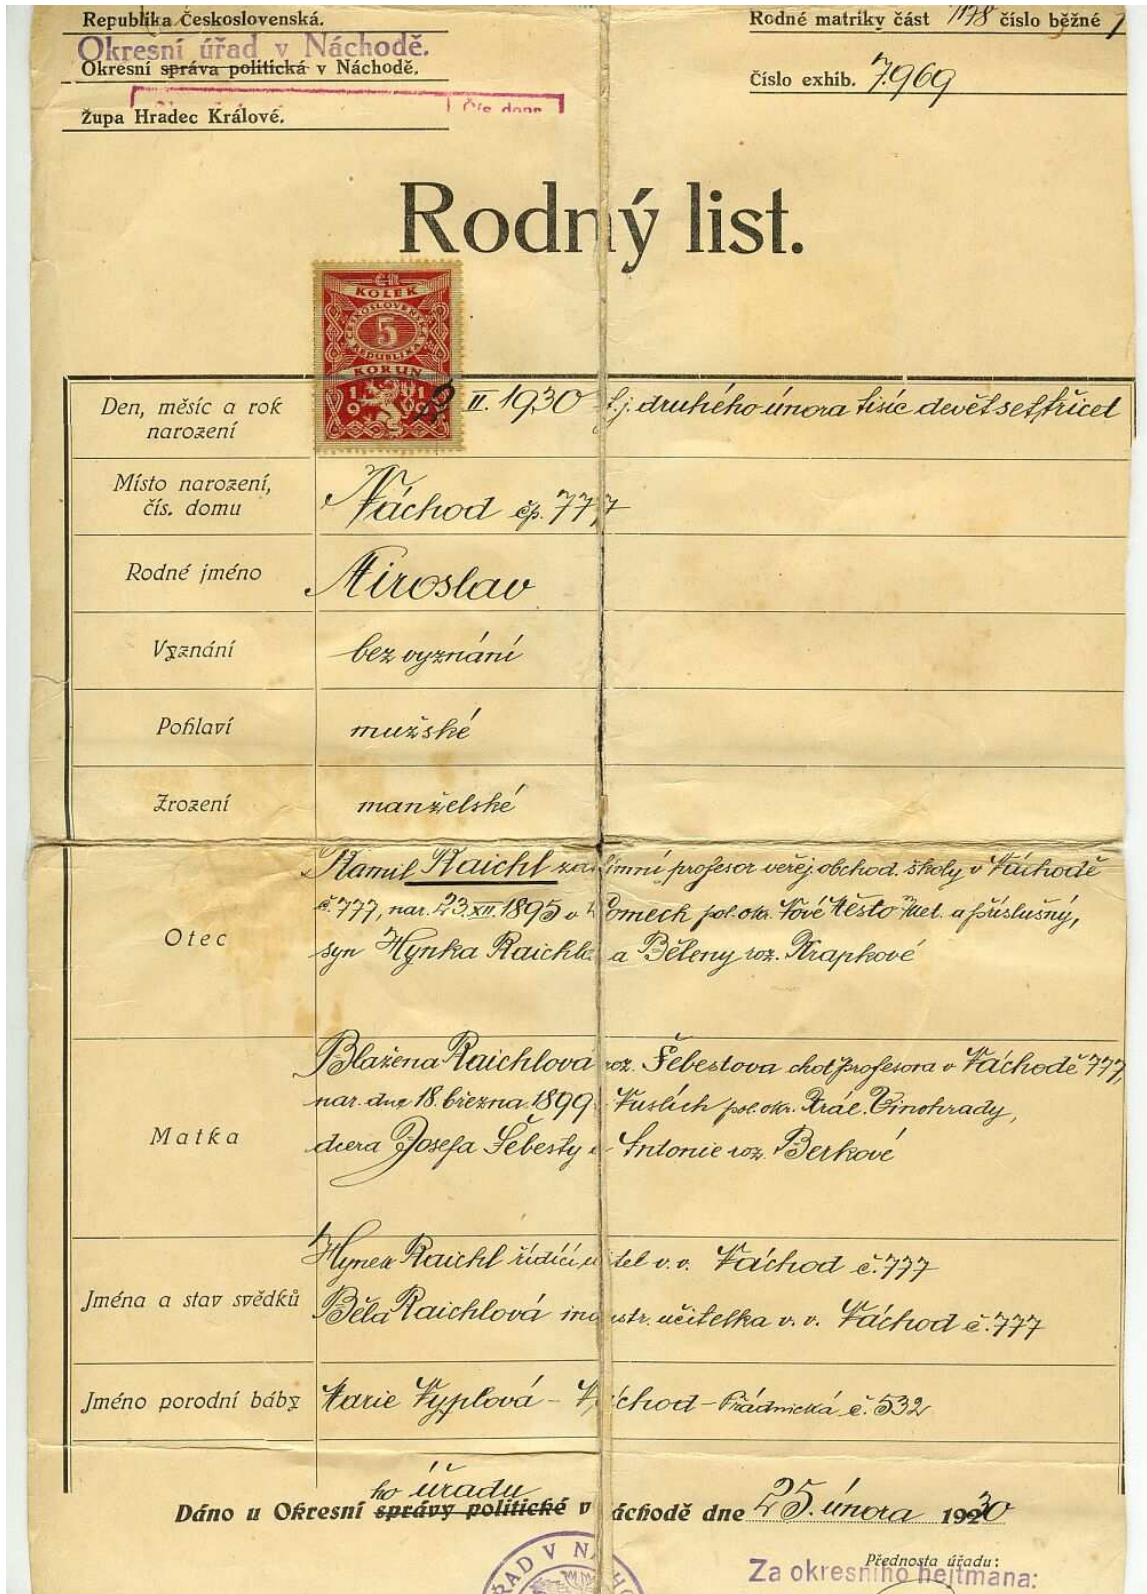 Republika Československá.
Okresní úřad v Náchodě.
Okresní správa politická v Náchodě.
Župa Hradec Králové.
Rodné matriky část číslo běžné
Číslo exhib. 7.969
Čís. dopo
Rodný list.
KOLEK
ČESKOSLOVENSKÁ
5
REPUBLIKA
KORUN
1919
Den, měsíc a rok narození
2 II. 1930 t.j. druhého února tisíc devět set třicet
Místo narození, čís. domu
Náchod čp. 777
Rodné jméno
Miroslav
Vyznání
bez vyznání
Pohlaví
mužské
Zrození
manželské
Otec
Kamil Raichl profesor veřej. obchod. školy v Náchodě
č. 777, nar. 23. XII. 1895 v pol. okr. Nové Město n/Met. a příslušný,
syn Hynka Raichla a Běleny roz. Krapkové
Matka
Blažena Raichlova roz. Šebestova choť profesora v Náchodě 777,
nar. dne 18. března 1899 Nuslích pol. okr. Král. Vinohrady,
dcera Josefa Šebesty a Antonie roz. Berkové
Jména a stav svědků
Hynek Raichl řídící učitel v. v. Náchod č. 777
Běla Raichlová industr. učitelka v. v. Náchod č. 777
Jméno porodní báby
Marie Vyplová – Náchod – Přádnická č. 532
ho úřadu
Dáno u Okresní správy politické v Náchodě dne 25. února 1930
ŘAD V NÁCHO
Přednosta úřadu:
Za okresního hejtmana: